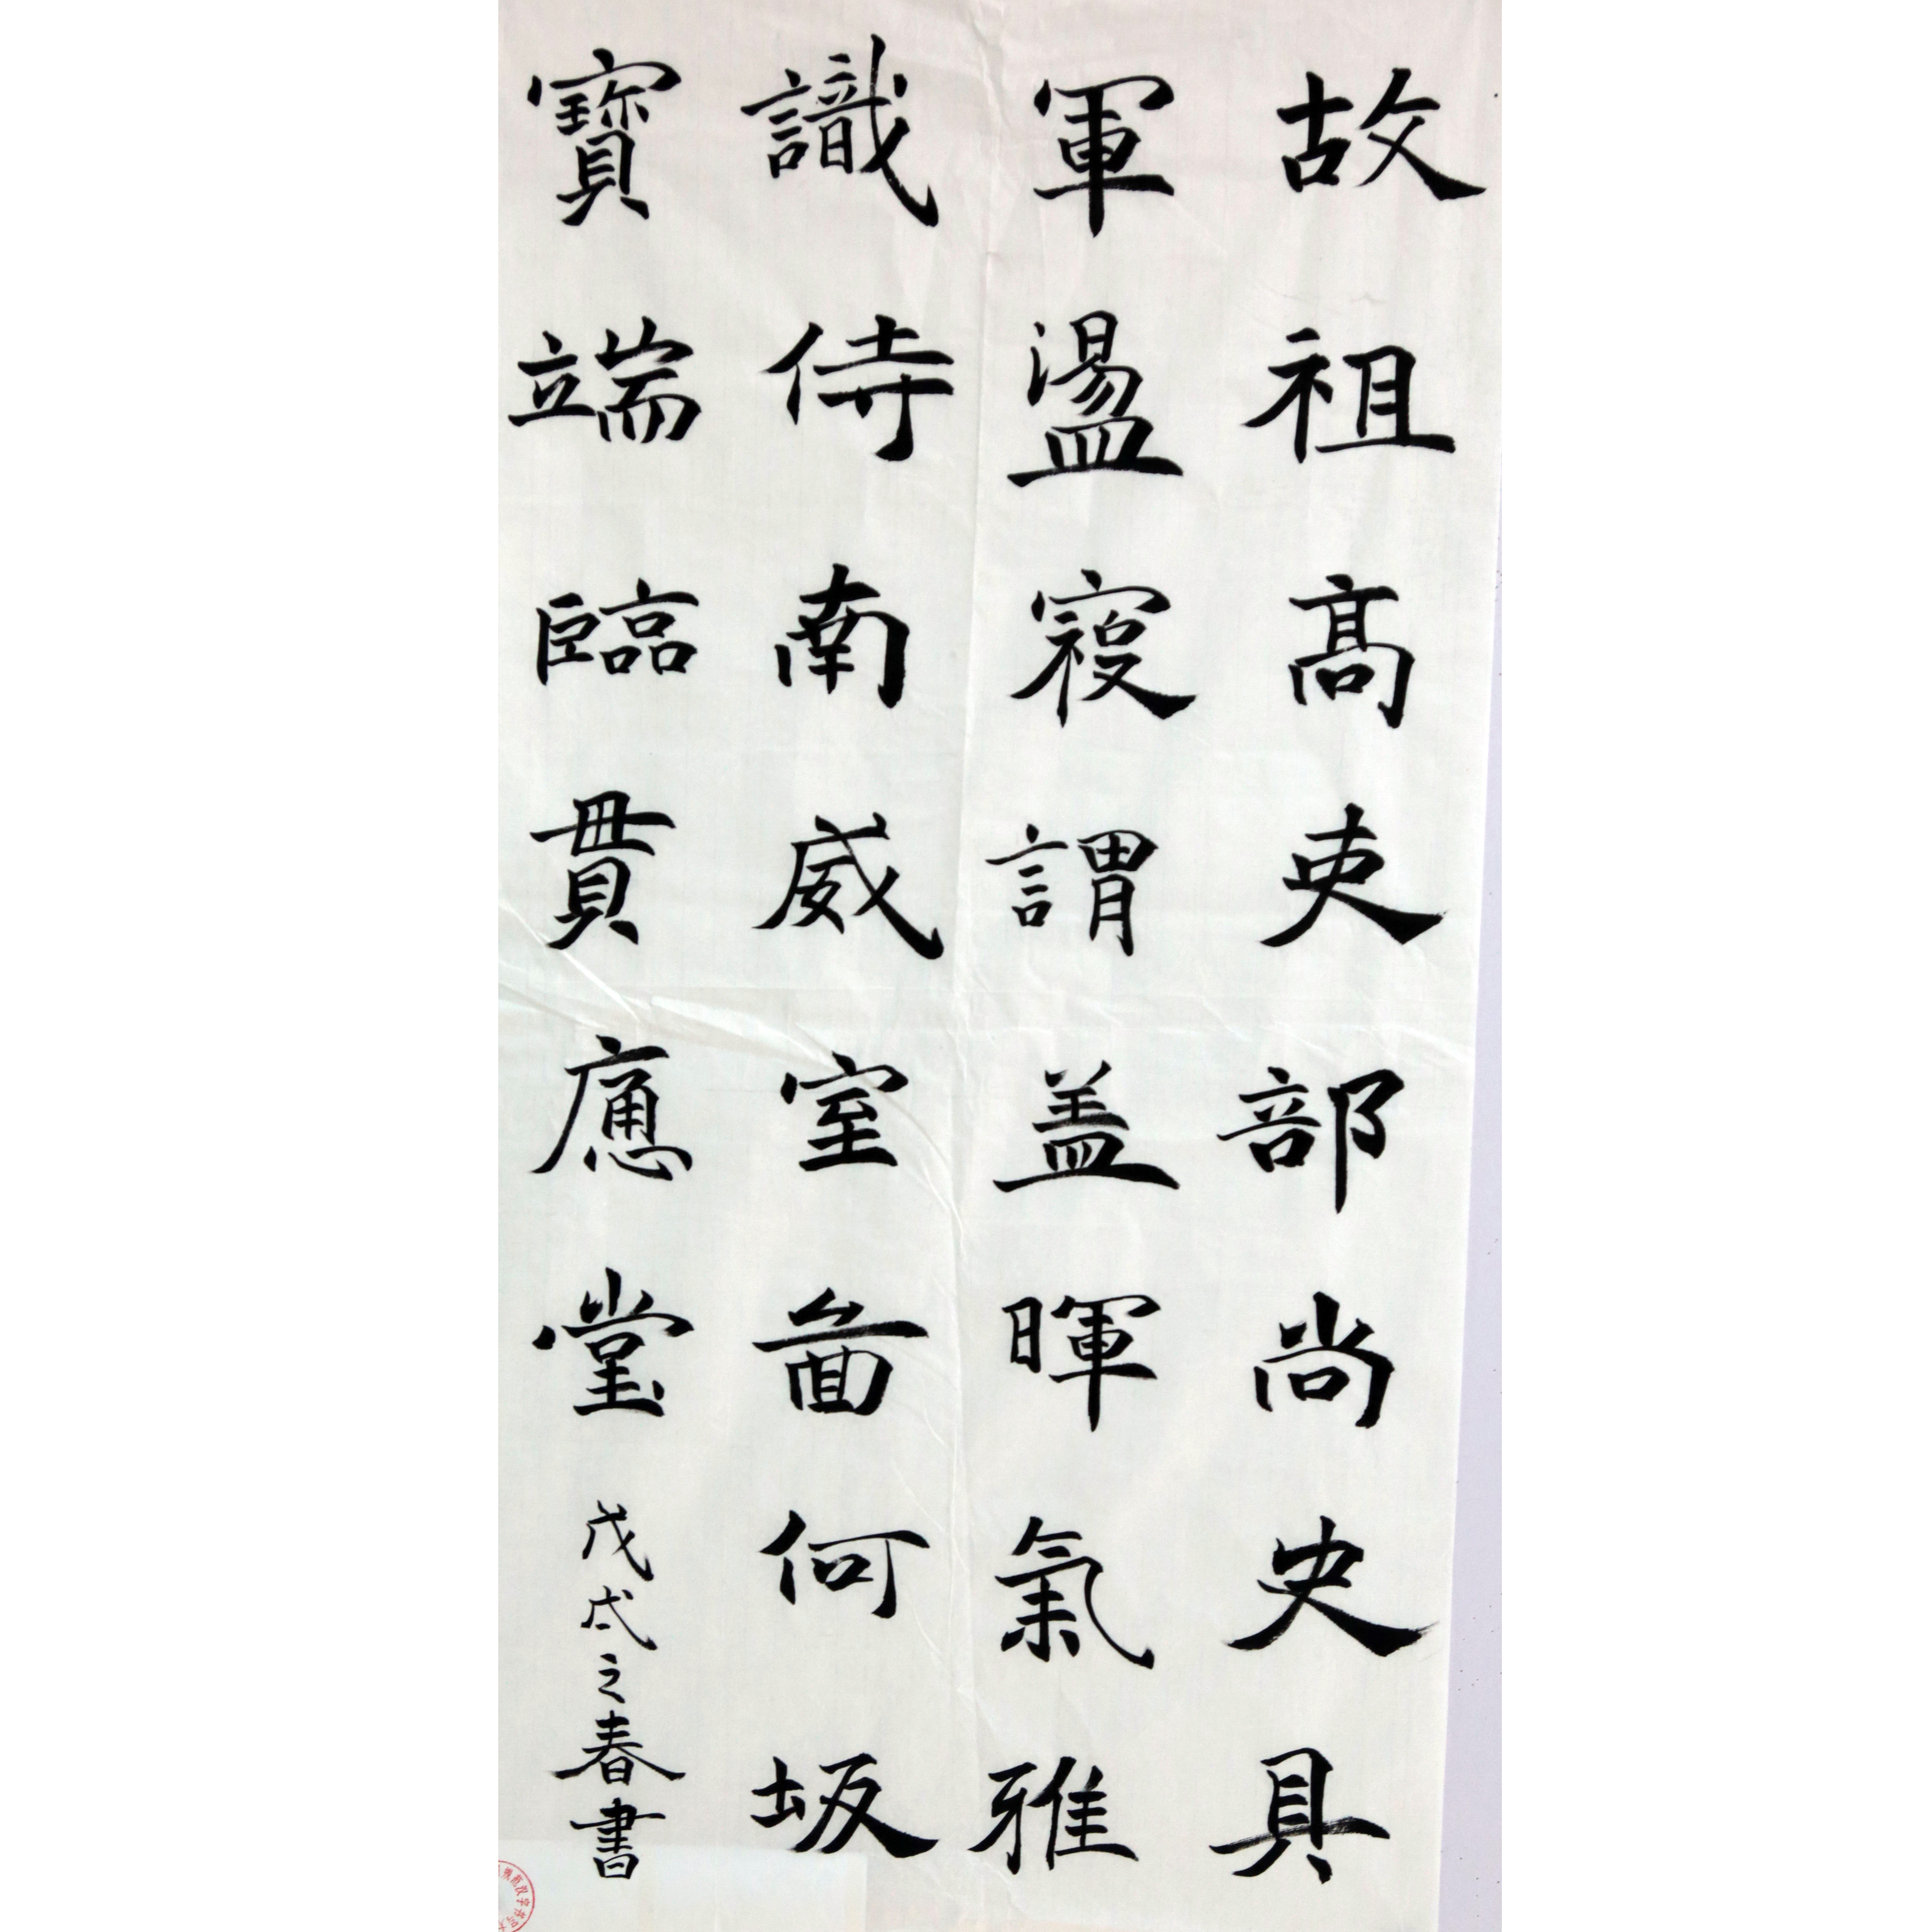 故祖高吏部尚史具
軍盪寇謂盖暉氣雅
識侍南威室面何坂
寶端臨貫應堂戊戌之春書